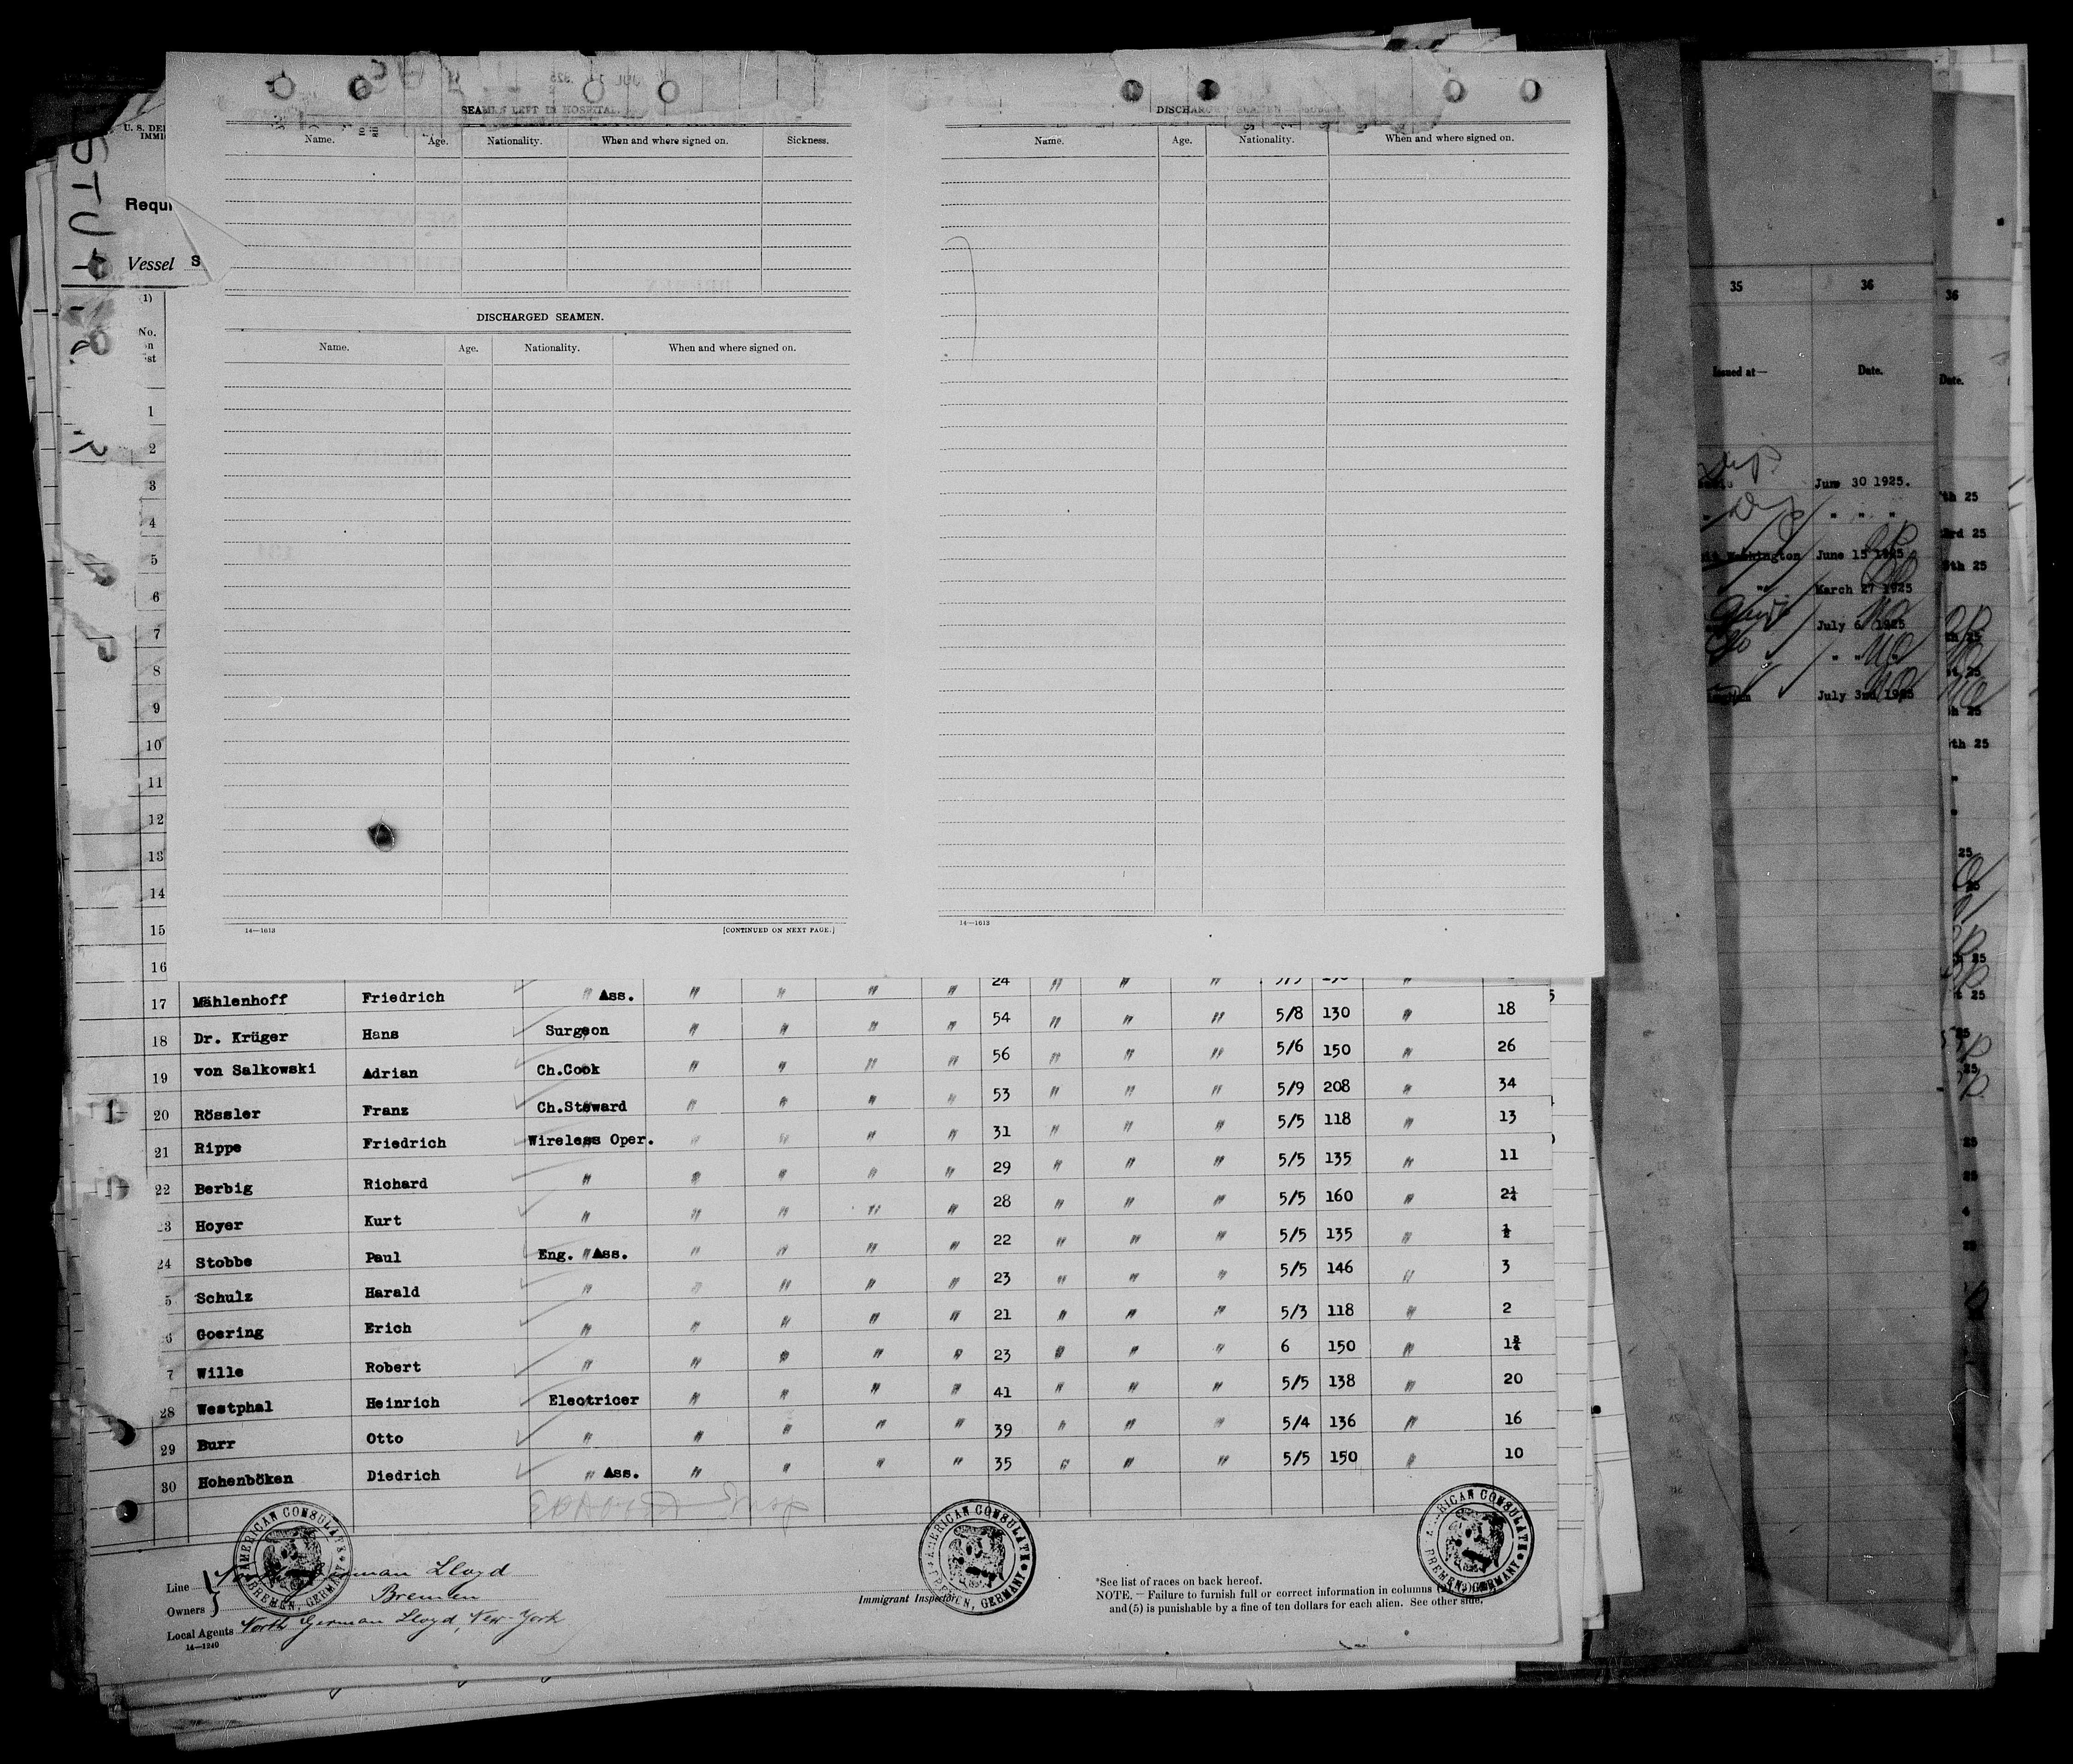 SEAMEN LEFT IN HOSPITAL.
Name. Age. Nationality. When and where signed on. Sickness.
DISCHARGED SEAMEN.
Name. Age. Nationality. When and where signed on.
14—1613 [CONTINUED ON NEXT PAGE.]
DISCHARGED SEAMEN
Name. Age. Nationality. When and where signed on.
14—1613
U. S. DE
IMMI
Requi
Vessel S
(1)
No.
1
2
3
4
5
6
7
8
9
10
11
12
13
14
15
16
17 Mählenhoff Friedrich " Ass. " " " " 24 " " "
18 Dr. Krüger Hans Surgeon " " " " 54 " " " 5/8 130 " 18
19 von Salkowski Adrian Ch.Cook " " " " 56 " " " 5/6 150 " 26
20 Rössler Franz Ch.Steward " " " " 53 " " " 5/9 208 " 34
21 Rippe Friedrich Wireless Oper. " " " " 31 " " " 5/5 118 " 13
22 Berbig Richard " " " " " 29 " " " 5/5 135 " 11
23 Hoyer Kurt " " " " " 28 " " " 5/5 160 " 2¼
24 Stobbe Paul Eng. " Ass. " " " " 22 " " " 5/5 135 " ½
5 Schulz Harald " " " " " 23 " " " 5/5 146 " 3
6 Goering Erich " " " " " 21 " " " 5/3 118 " 2
7 Wille Robert " " " " " 23 " " " 6 150 " 1¾
28 Westphal Heinrich Electricer " " " " 41 " " " 5/5 138 " 20
29 Burr Otto " " " " " 39 " " " 5/4 136 " 16
30 Hohenböken Diedrich " Ass. " " " " 35 " " " 5/5 150 " 10
AMERICAN CONSULATE BREMEN, GERMANY
AMERICAN CONSULATE BREMEN, GERMANY
AMERICAN CONSULATE BREMEN, GERMANY
Line German Lloyd
Owners Bremen
Local Agents North German Lloyd, New-York
14—1240
Immigrant Inspector.
*See list of races on back hereof.
NOTE.—Failure to furnish full or correct information in columns
and (5) is punishable by a fine of ten dollars for each alien. See other side.
35 36
Issued at— Date.
June 30 1925.
" " "
Washington June 15 1925
" March 27 1925
July 6 1925
" " "
July 3rd 1925
36
Date.
th 25
3rd 25
5th 25
th 25
st 25
th 25
th 25
25
25
25
25
25
25
25
25